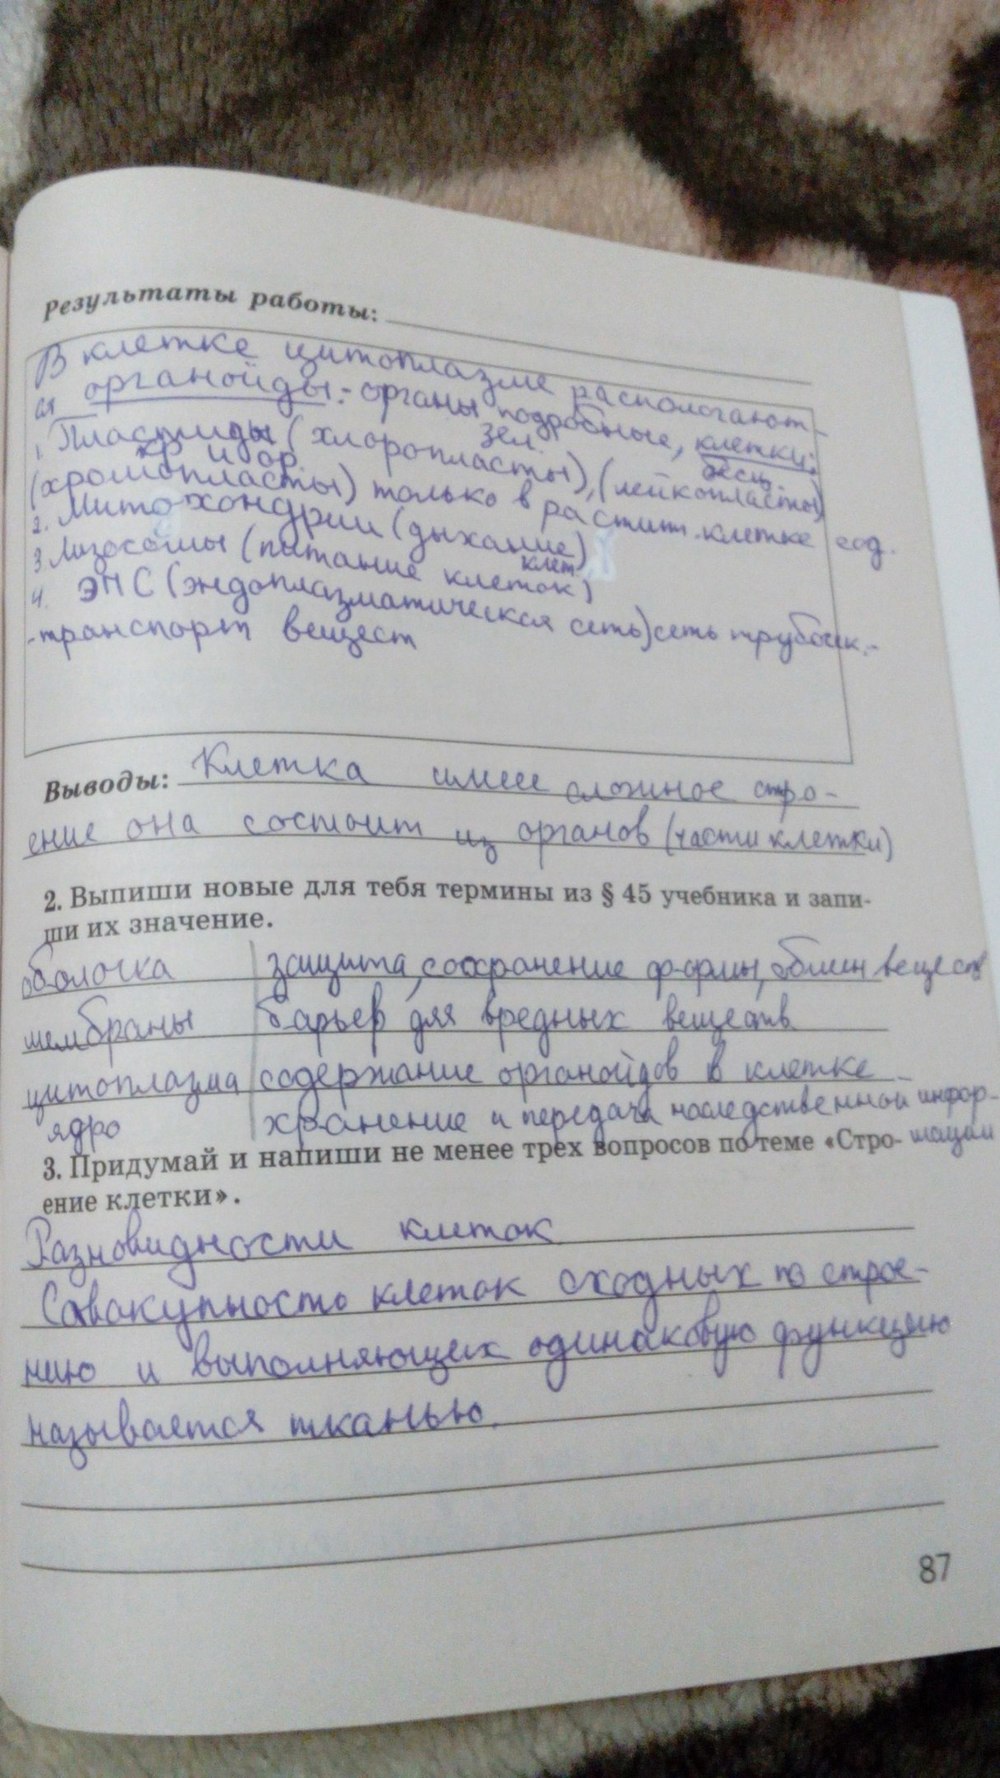 Результаты работы:
В клетке цитоплазме распологают-
ся органойды:- органы подробные, клетки:
зел. бесц.
1. Пластиды (хлоропласты), (лейкопласты)
кр и ор.
(хромопласты) только в растит. клетке
2. Митохондрии (дыхание)
клет
3. Лизосомы (питание клеток)
4. ЭПС (эндоплазматическая сеть) сеть трубочек.-
-транспорт вещест
Выводы: Клетка имее сложное стро-
ение она состоит из органов (части клетки)
2. Выпиши новые для тебя термины из § 45 учебника и запи-
ши их значение.
оболочка защита, сохранение формы, обмен веществ
мембраны барьер для вредных веществ
цитоплазма содержание органойдов в клетке
ядро хранение и передача наследственной инфор-
мации
3. Придумай и напиши не менее трех вопросов по теме «Стро-
ение клетки».
Разновидности клеток
Савакупность клеток сходных по строе-
нию и выполняющих одинаковую функцию
называется тканью.
87